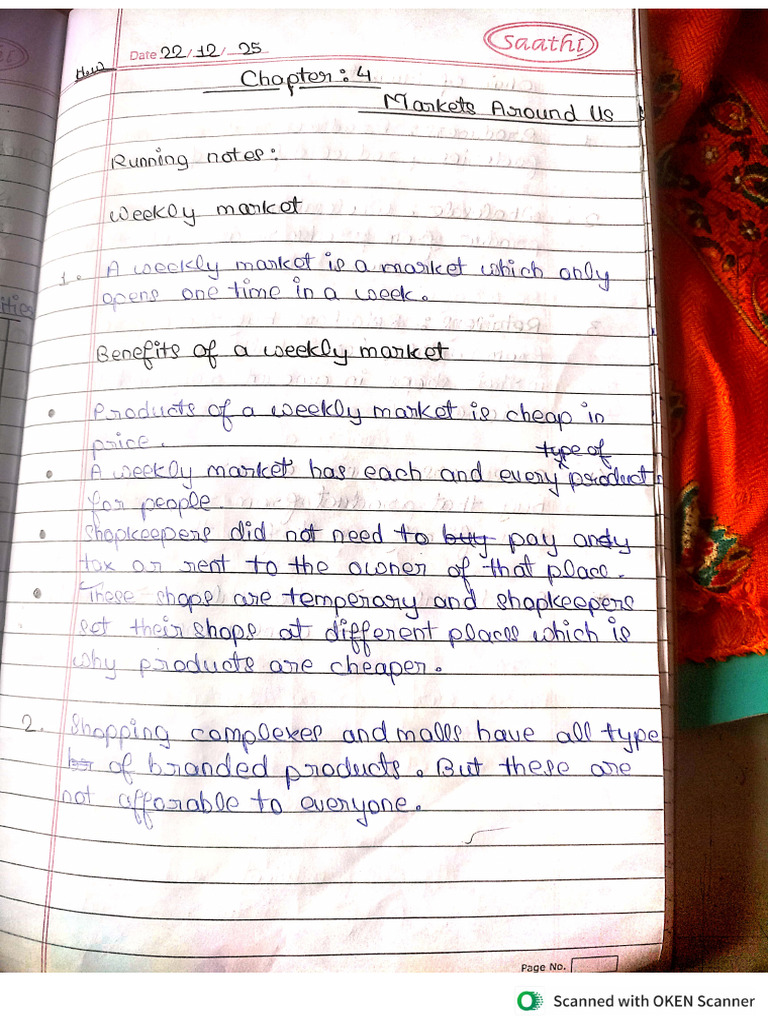 saathi
Date 22/12/25
H.W
Chapter: 4
Markets Around Us
Running notes:
Weekly market
1. A weekly market is a market which only
opens one time in a week.
Benefits of a weekly market
• Products of a weekly market is cheap in
price.
type of
• A weekly market has each and every product
for people.
• Shopkeepers did not need to buy pay andy
tax or rent to the owner of that place.
• These shops are temperary and shopkeepers
set their shops at different places which is
why products are cheaper.
2. Shopping complexes and malls have all type
of branded products. But these are
not afforable to everyone.
Page No.
Scanned with OKEN Scanner